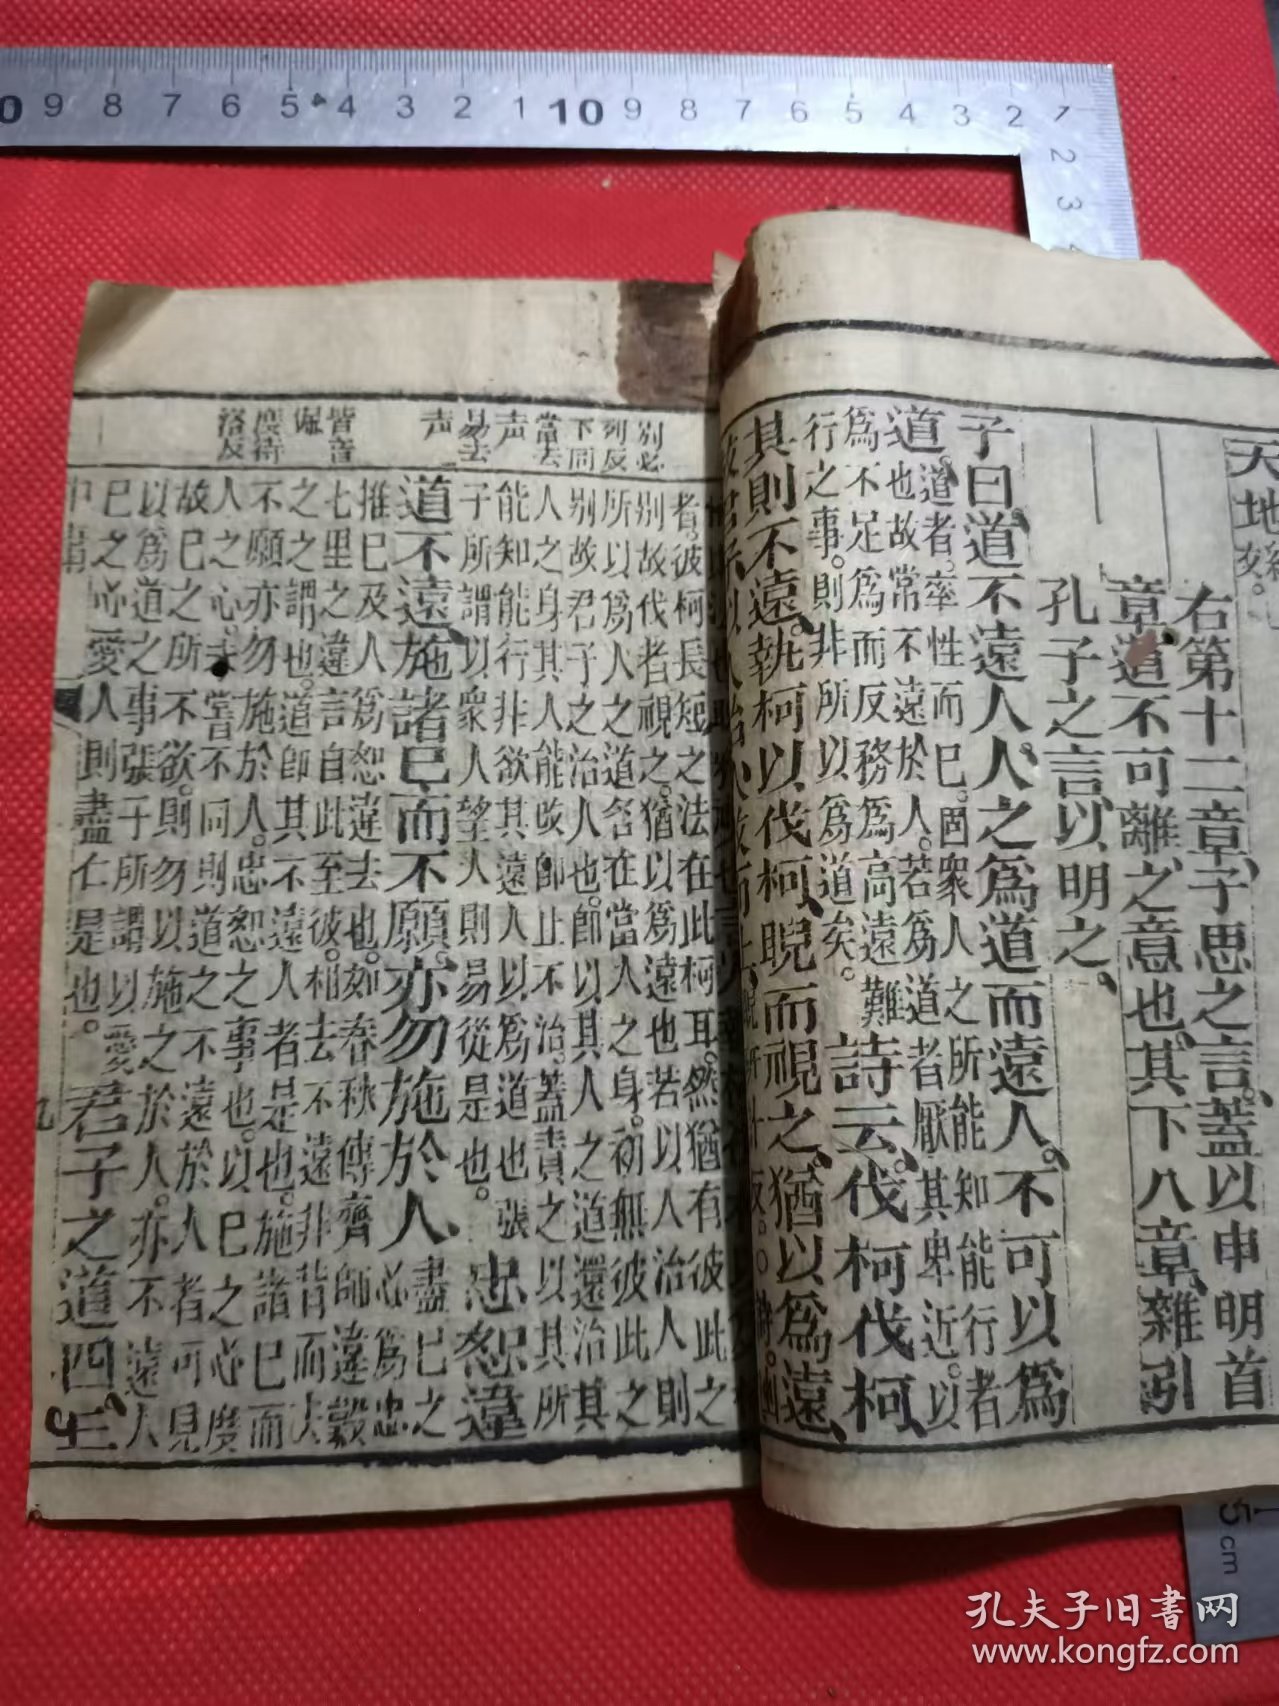 天地
右第十二章子思之言蓋以申明首
章道不可離之意也其下八章雜引
孔子之言以明之
子曰道不遠人人之爲道而遠人不可以爲
道道者率性而已固衆人之所能知能行者
也故常不遠於人若爲道者厭其卑近以
爲不足爲而反務爲高遠難
行之事則非所以爲道矣詩云伐柯伐柯
其則不遠執柯以伐柯睨而視之猶以爲遠
者彼柯長短之法在此柯耳然猶有彼此之
別故伐者視之猶以爲遠也若以人治人則
所以爲人之道各在當人之身初無彼此之
別故君子之治人也卽以其人之道還治其
人之身其人能改卽止不治蓋責之以其所
能知能行非欲其遠人以爲道也張
子所謂以衆人望人則易從是也忠恕違
道不遠施諸己而不願亦勿施於人盡己之
心爲忠
推己及人爲恕違去也如春秋傳齊師違穀
七里之違言自此至彼相去不遠非背而去
之之謂也道卽其不遠人者是也施諸己而
不願亦勿施於人忠恕之事也以己之心度
人之心未嘗不同則道之不遠於人者可見
故己之所不欲則勿以施之於人亦不遠人
以爲道之事張子所謂以愛
己之心愛人則盡仁是也君子之道四
別必
列反
下同
當去
声
易去
声
皆音
佩
度待
洛反
九
10 9 8 7 6 5 4 3 2 1 10 9 8 7 6 5 4 3 2 1
2
3
5 cm
孔夫子旧書网
www.kongfz.com